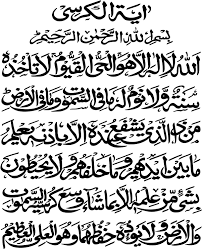 آية الكرسي
بسم الله الرحمن الرحيم
الله لا اله الا هو الحي القيوم لا تأخذه
سنة ولا نوم له ما في السموات وما في الارض
من ذا الذي يشفع عنده الا باذنه يعلم
ما بين ايديهم وما خلفهم ولا يحيطون
بشئ من علمه الا بما شاء وسع كرسيه السموات
والارض ولا يؤده حفظهما وهو العلي العظيم